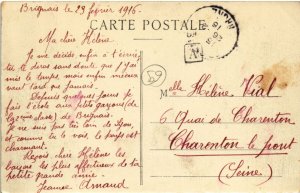 Brignais le 23 février 1916-
CARTE POSTALE
Ma chère Hélène.
Je me décide enfin à t'écrire,
tu le diras sans doute que j'ai
mis le temps mais enfin mieux
vaut tard que jamais.
Depuis quelques jours je
fais l'école aux petits garçons (de
classe) de Brignais.
Je ne suis pas très loin de Lyon,
et comme tu le vois le pays est
charmant.
Reçois chère Hélène les
baisers les plus affectueux de ta
petite grande amie.
Jeanne Arnaud
59
Melle Hélène Vial
6 Quai de Charenton
Charenton le pont
(Seine)